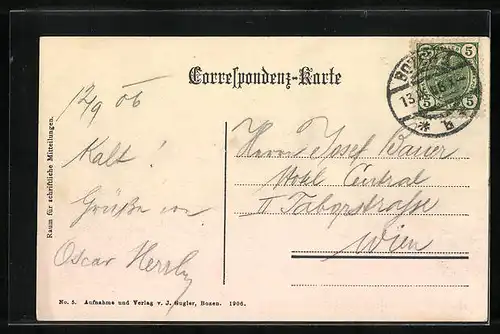 Correspondenz-Karte
5 5
5 5
13.
* b *
12/9 06
Kalt!
Grüße von
Oscar
Herrn Josef Bauer
Hotel Central
II Taborstraße
Wien
Raum für schriftliche Mitteilungen.
No. 5. Aufnahme und Verlag v. J. Gugler, Bozen. 1906.